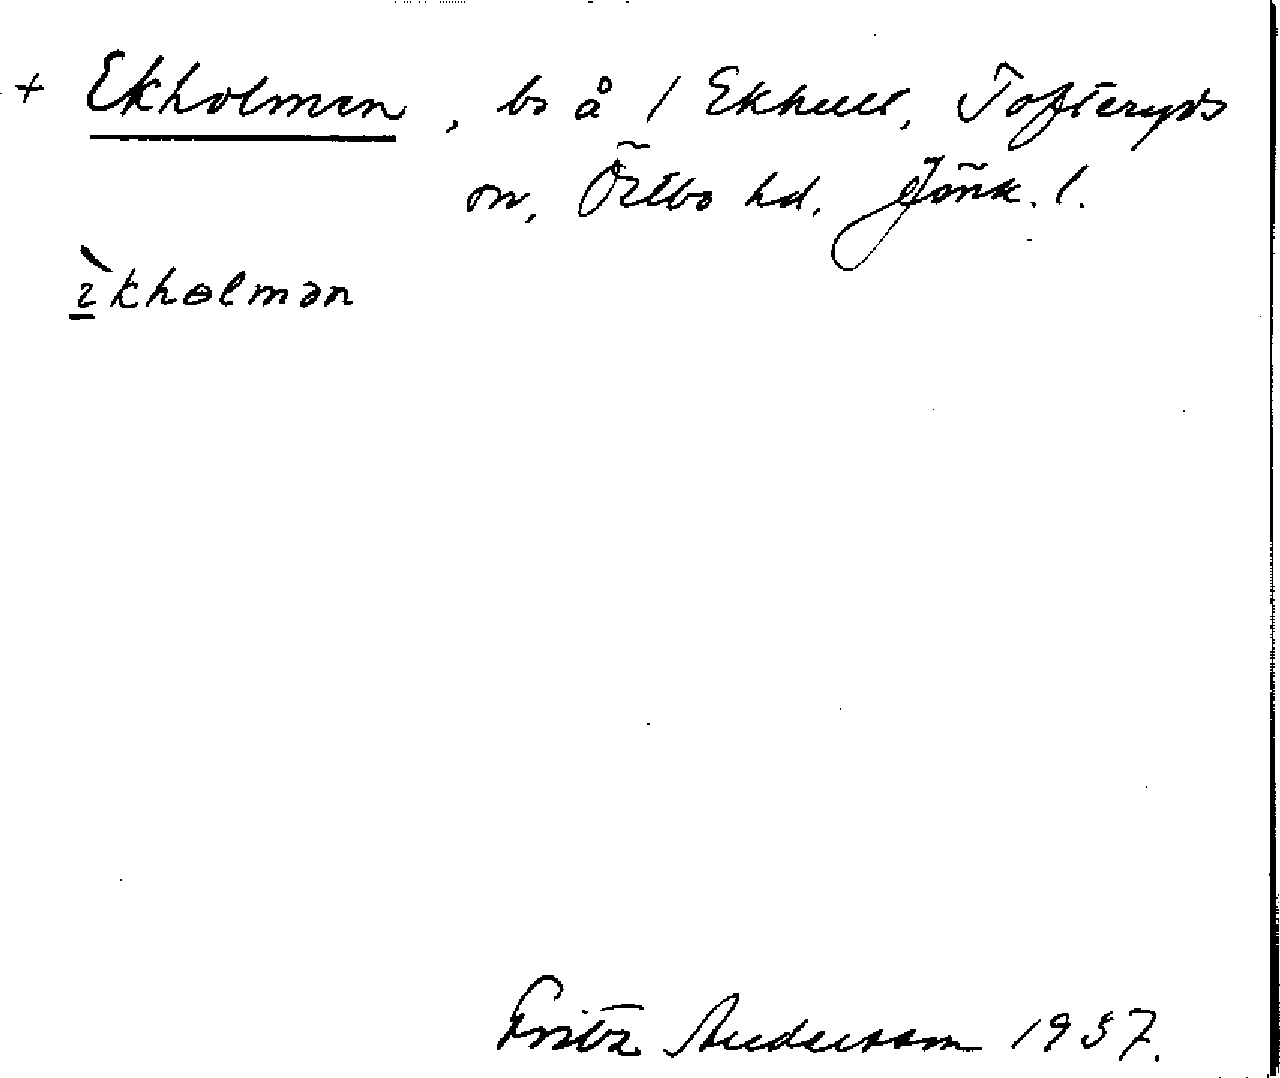 + Ekholmen, bs å 1 Ekhult, Tofteryds
sn, Östbo hd. Jönk. l.
èkhɵlmən
Fritz Andersson 1937.